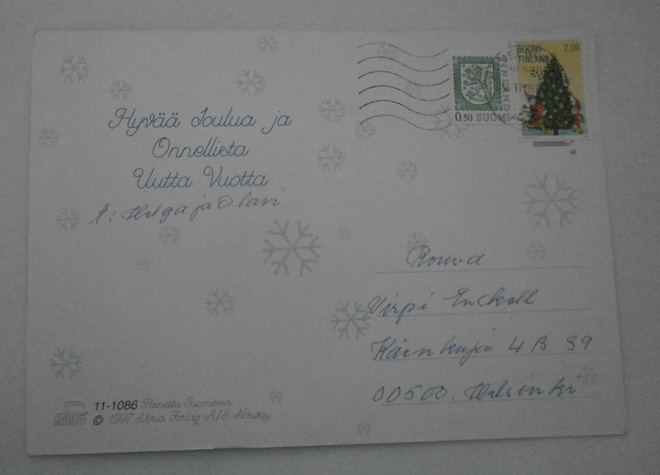 Hyvää Joulua ja
Onnellista
Uutta Vuotta
t: Helga ja Olavi
SUOMI
FINLAND
2,00
0,50 SUOMI
Rouva
Virpi Enckell
4 B 39
00500 Helsinki
11-1086 Painettu Suomessa
© 1997 Norway